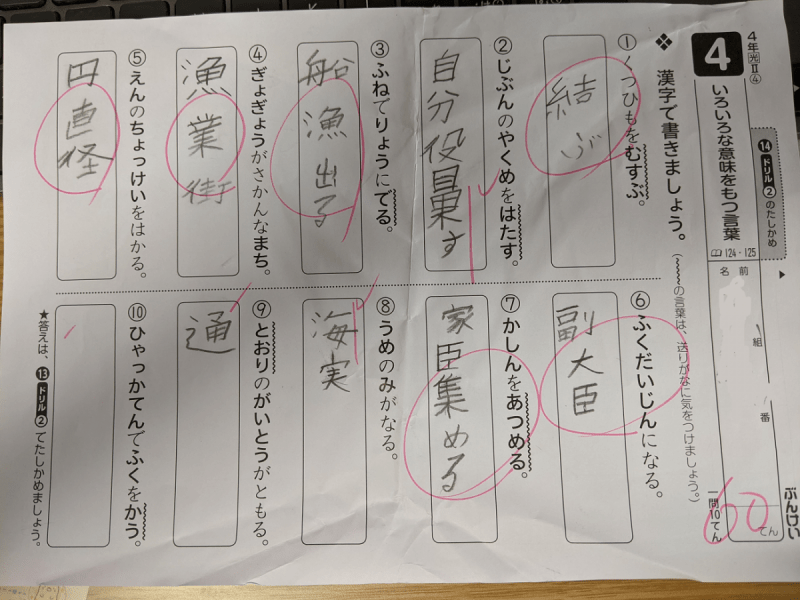 4年光Ⅱ④
14 ドリル② のたしかめ
4
いろいろな意味をもつ言葉
124・125
名前
組
番
ぶんけい
60
てん
一問10てん
❖ 漢字で書きましょう。(〰〰の言葉は、送りがなに気をつけましょう。)
① くつひもをむすぶ。
結ぶ
② じぶんのやくめをはたす。
自分役目果す
③ ふねでりょうにでる。
船漁出る
④ ぎょぎょうがさかんなまち。
漁業街
⑤ えんのちょっけいをはかる。
円直径
⑥ ふくだいじんになる。
副大臣
⑦ かしんをあつめる。
家臣集める
⑧ うめのみがなる。
海実
⑨ とおりのがいとうがともる。
通
⑩ ひゃっかてんでふくをかう。
★答えは、13 ドリル② でたしかめましょう。